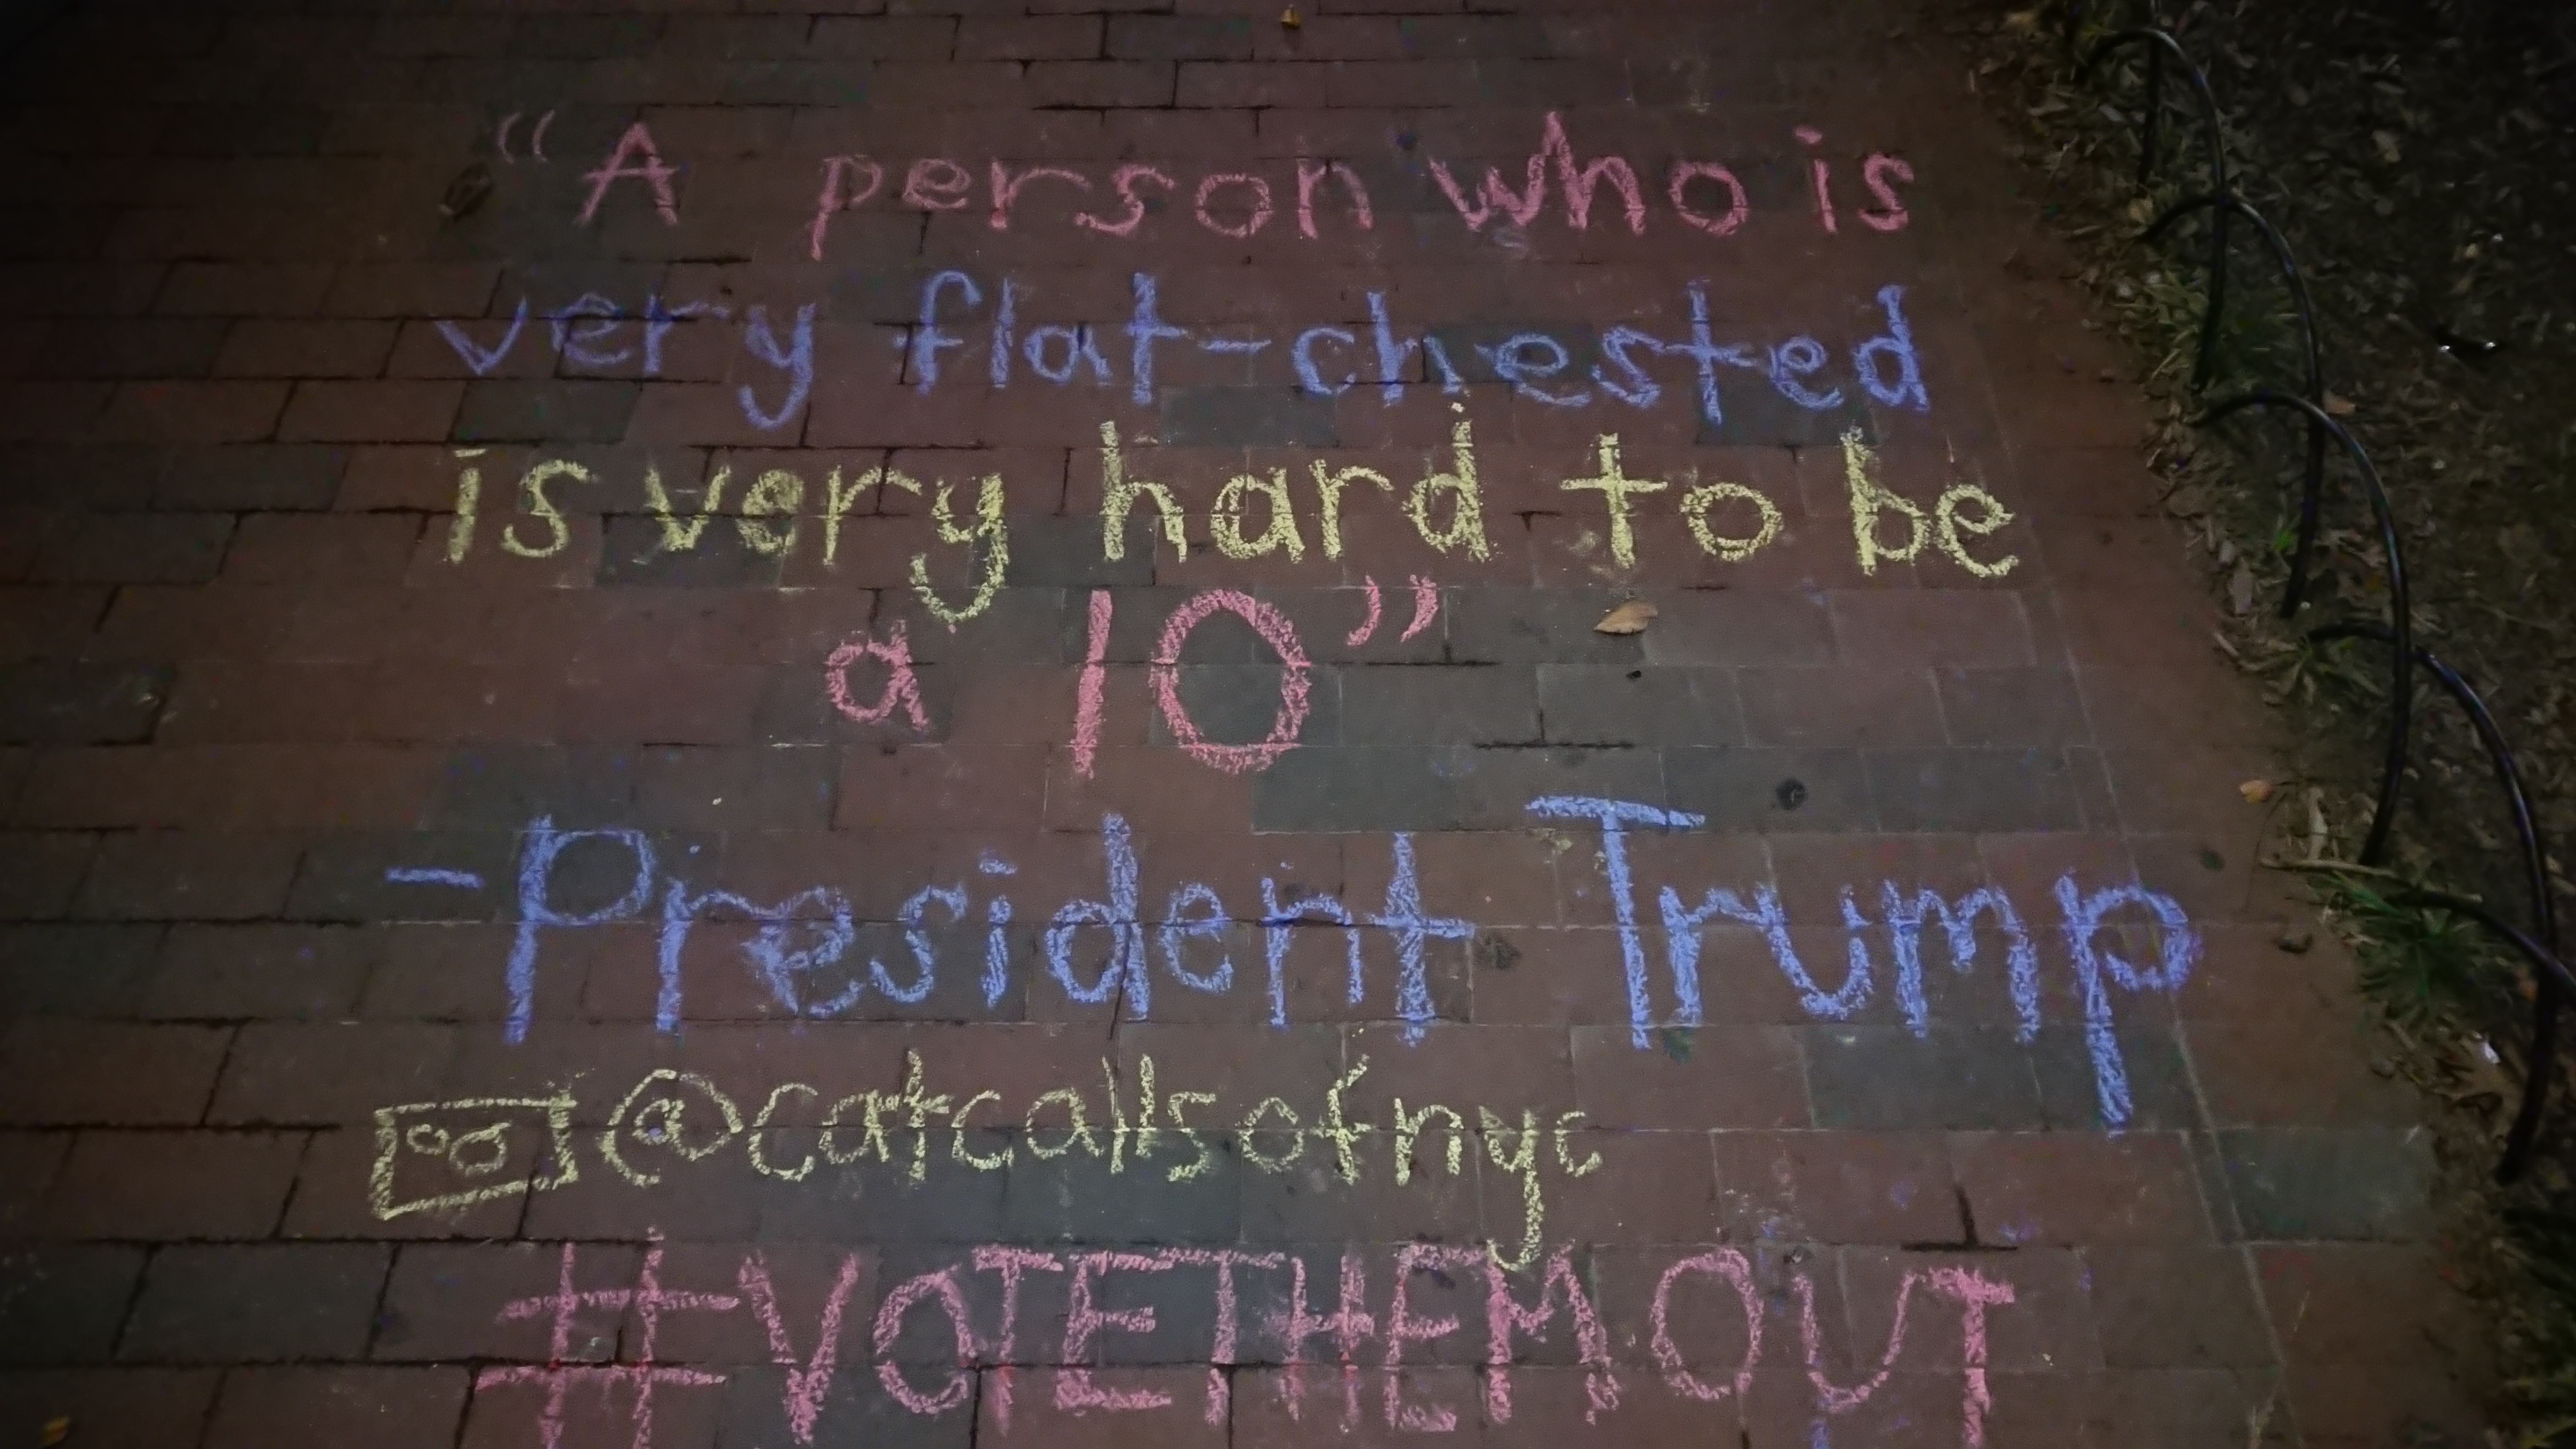 “A person who is
very flat-chested
is very hard to be
a 10”
-President Trump
@catcallsofnyc
#VOTETHEMOUT